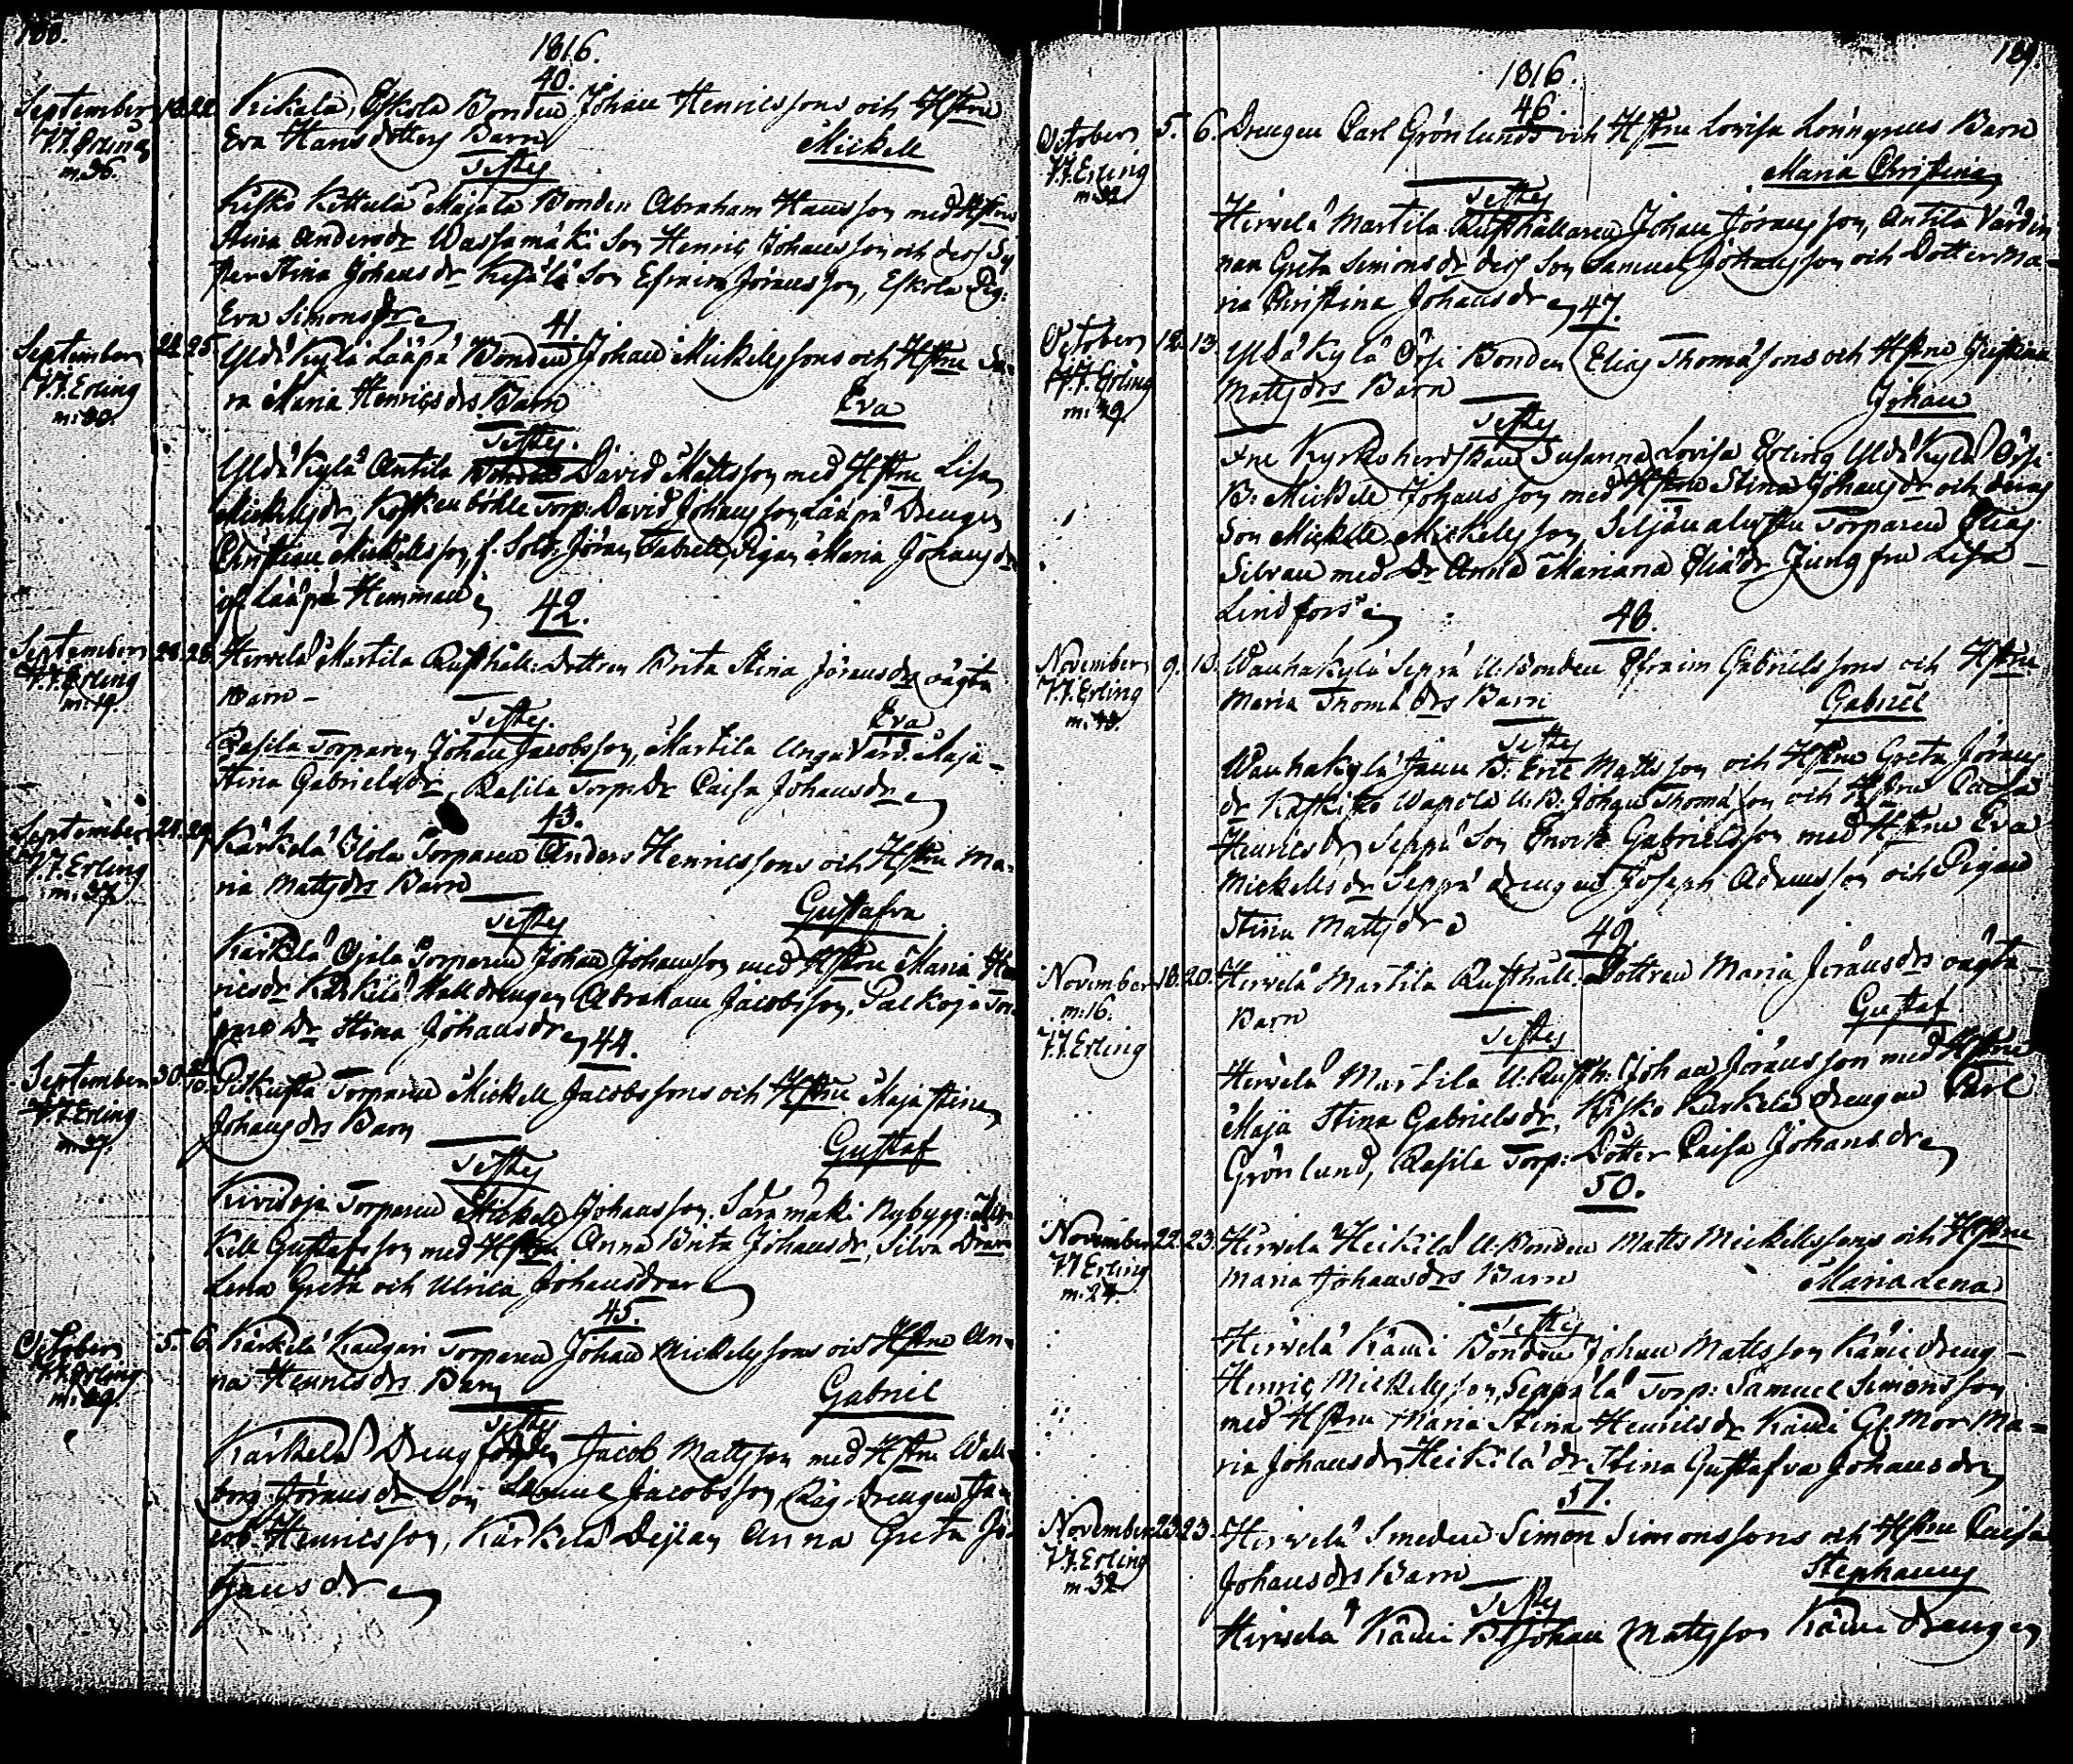 188.
1816.
40.
September 18. 22. Keikala, Eskola Bonden Johan Henricssons och Hstru
Eva Hansdotters Barn Mickell
V.F. Erling
m. 36.
Testes
Kisko Kittula Majala Bonden Abraham Hansson med Hstru
Stina Andersdr Wassamäki Son Henric Johansson och dess Sy
ster Stina Johansdr Kesälä Son Efraim Jöransson, Eskola Pig:
Eva Simonsdr
41.
September 22. 25. Yldäkylä Lääpä Bonden Johan Mickelssons och Hstru Sa-
ra Maria Henricsdrs Barn Eva
V.F. Erling
m: 30.
Testes.
Yldäkylä Antila Bonden David Mattsson med Hstru Lisa
Mickelsdr, Koskenböhle Torp: David Johansson, Lääpä Drengen
Christian Mickellsson, f. Sold: Jöran Tabell, Pigan Maria Johansdr
ifr Lääpä Hemman
42.
September 28. 28. Hirvelä Martila Rusthåll: Dottren Brita Stina Jöransdrs oägta
Barn - Eva
V.F. Erling
m. 19.
Testes.
Rasila Torparen Johan Jacobsson, Martila Unga Värd: Maja
Stina Gabrielsdr, Rasila Torp: Dr Caisa Johansdr
43.
September 28. 29. Kärkelä Torparen Anders Henricssons och Hstru Ma-
ria Mattsdrs Barn Gustafva
V.F. Erling
m: 37.
Testes
Kärkelä Ojala Torparen Johan Johansson med Hstru Maria Hen
ricsdr Kärkelä Walldrengen Abraham Jacobsson, Palkoja Tor-
pare Dr Stina Johansdr
44.
September 30. Torparen Mickell Jacobssons och Hstru Maja Stina
Johansdrs Barn Gustaf
V.F. Erling
m. 37.
Testes
Kividoja Torparen Mickell Johansson, Säramäki Nybygg: Mic-
kell Gustafsson med Hstru Anna Brita Johansdr, Silva
Lena Greta och Ulrica Johansdrar
45.
October 5. 6. Kärkelä Kangari Torparen Johan Mickelssons och Hstru An-
na Henricsdrs Barn Gabriel
V.F. Erling
m. 29.
Testes
Kärkelä Dreng Jacob Mattsson med Hstru Wal-
borg Jöransdr Son Samuel Jacobsson, Drengen Ja-
cob Henricsson, Kärkelä Dejian Anna Greta Jo-
hansdr
189.
1816.
46.
October 5. 6. Drengen Carl Grönlunds och Hstru Lovisa Lönngrens Barn
Maria Christina
V.F. Erling
m. 32
Testes
Hirvelä Martila Rusthållaren Johan Jöransson, Antila Värdin
nan Greta Simonsdr dess Son Samuel Johansson och Dotter Ma-
ria Christina Johansdr
47.
October 12. 13. Yldäkylä Örsi Bonden Elias Thomassons och Hstru Justina
Mattsdrs Barn Johan
V.F. Erling
m: 29.
Testes
Fru Kyrkoherdskan Susanna Lovisa Erling Yldäkylä Örsi
B: Mickell Johansson med Hstru Stina Johansdr och deras
Son Mickell Mickelsson, Torparen Elias
Silvan med Dr Anna Mariana Eliædr Jungfru Lisa
Lindfors
48.
November 9. 13. Wanhakylä Seppä U. Bonden Efraim Gabrielssons och Hstru
Maria Thomædrs Barn Gabriel
V.F. Erling
m. 40.
Testes
Wanhakylä Janu B: Eric Mattsson och Hstru Greta Jörans
dr Katkiko Wapola U: B: Johan Thomasson och Hstru Caisa
Henricsdr, Seppä Son Henric Gabrielsson med Hstru Eva
Mickellsdr Seppä drengen Joseph Adamsson och Pigan
Stina Mattsdr
49.
November 18. 20. Hirvelä Martila Rusthåll: Dottren Maria Jöransdrs oägta
Barn Gustaf
m: 16.
V.F. Erling
Testes
Hirvelä Martila U: Rusth: Johan Jöransson med Hstru
Maja Stina Gabrielsdr, Kisko Kärkelä drengen Carl
Grönlund, Rasila Torp: Dotter Caisa Johansdr
50.
November 22. 23. Hirvelä Heikilä U. Bonden Matts Mickellssons och Hstru
Maria Johansdrs Barn Maria Lena
V.F. Erling
m. 24.
Testes
Hirvelä Kämi Bonden Johan Mattsson Kämi dreng
Henric Mickelsson, Seppälä Torp: Samuel Simonsson
med Hstru Maria Stina Henricsdr Kämi Gl. Mor Ma-
ria Johansdr, Heikilä dr, Stina Gustafva Johansdr
51.
November 23. 23. Hirvelä Smeden Simon Simonssons och Hstru Caisa
Johansdrs Barn Stephanus
V.F. Erling
m. 32
Testes
Hirvelä Kämi B: Johan Mattsson Kämi drengen